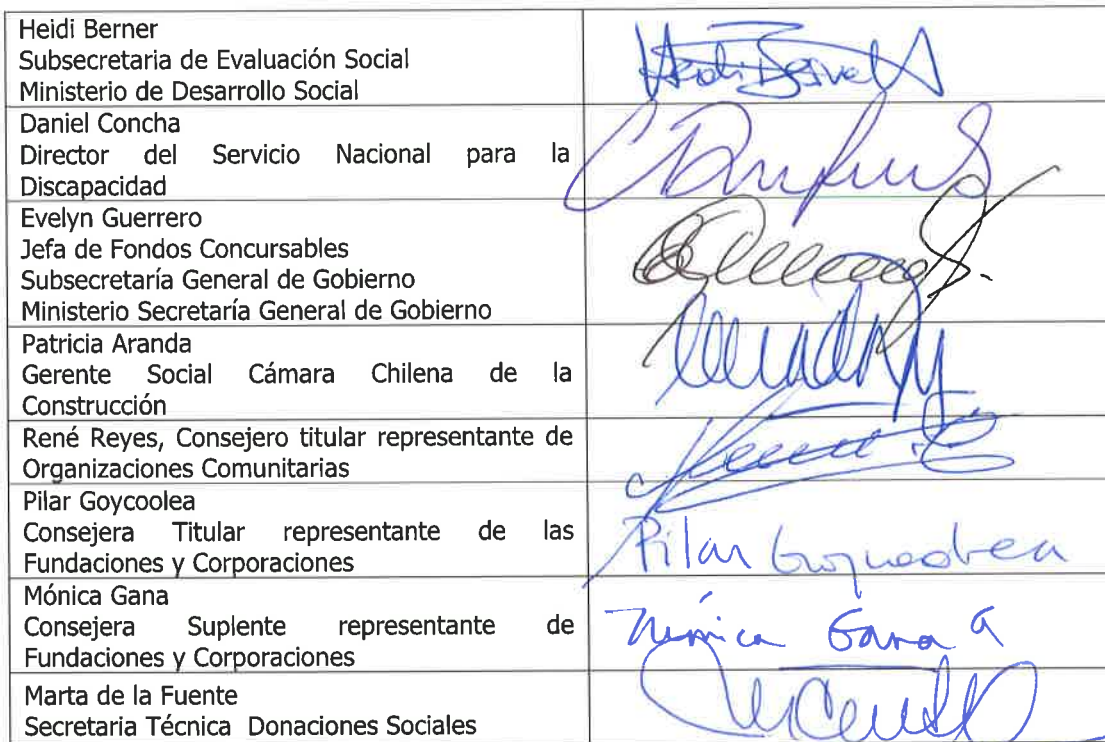 Heidi Berner
Subsecretaria de Evaluación Social
Ministerio de Desarrollo Social
Daniel Concha
Director del Servicio Nacional para la
Discapacidad
Evelyn Guerrero
Jefa de Fondos Concursables
Subsecretaría General de Gobierno
Ministerio Secretaría General de Gobierno
Patricia Aranda
Gerente Social Cámara Chilena de la
Construcción
René Reyes, Consejero titular representante de
Organizaciones Comunitarias
Pilar Goycoolea
Consejera Titular representante de las
Fundaciones y Corporaciones
Pilar Goycoolea
Mónica Gana
Consejera Suplente representante de
Fundaciones y Corporaciones
Mónica Gana G
Marta de la Fuente
Secretaria Técnica Donaciones Sociales